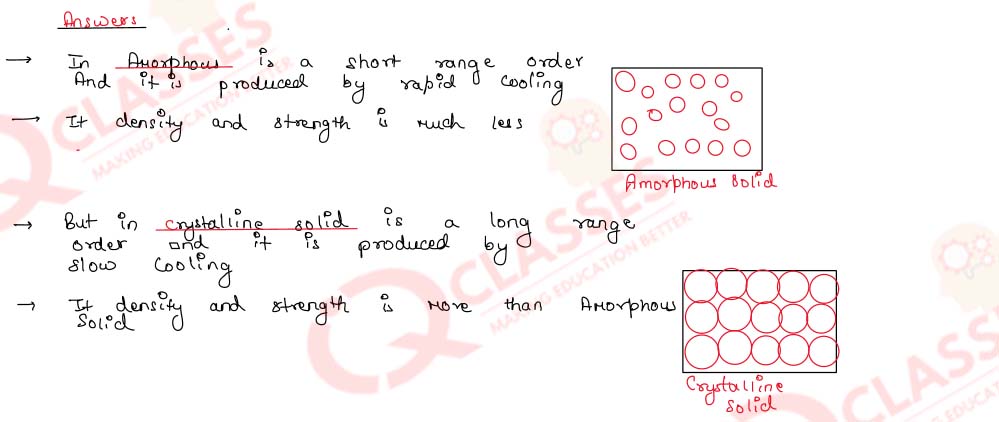 Answers
→ In Amorphous is a short range order
And it is produced by rapid cooling
→ It density and strength is much less
Amorphous Solid
→ But in crystalline solid is a long range
order and it is produced by
slow cooling
→ It density and strength is more than Amorphous
Solid
Crystalline
Solid
CLASSES
MAKING EDUCATION BETTER
CLASSES
MAKING EDUCATION BETTER
CLASSES